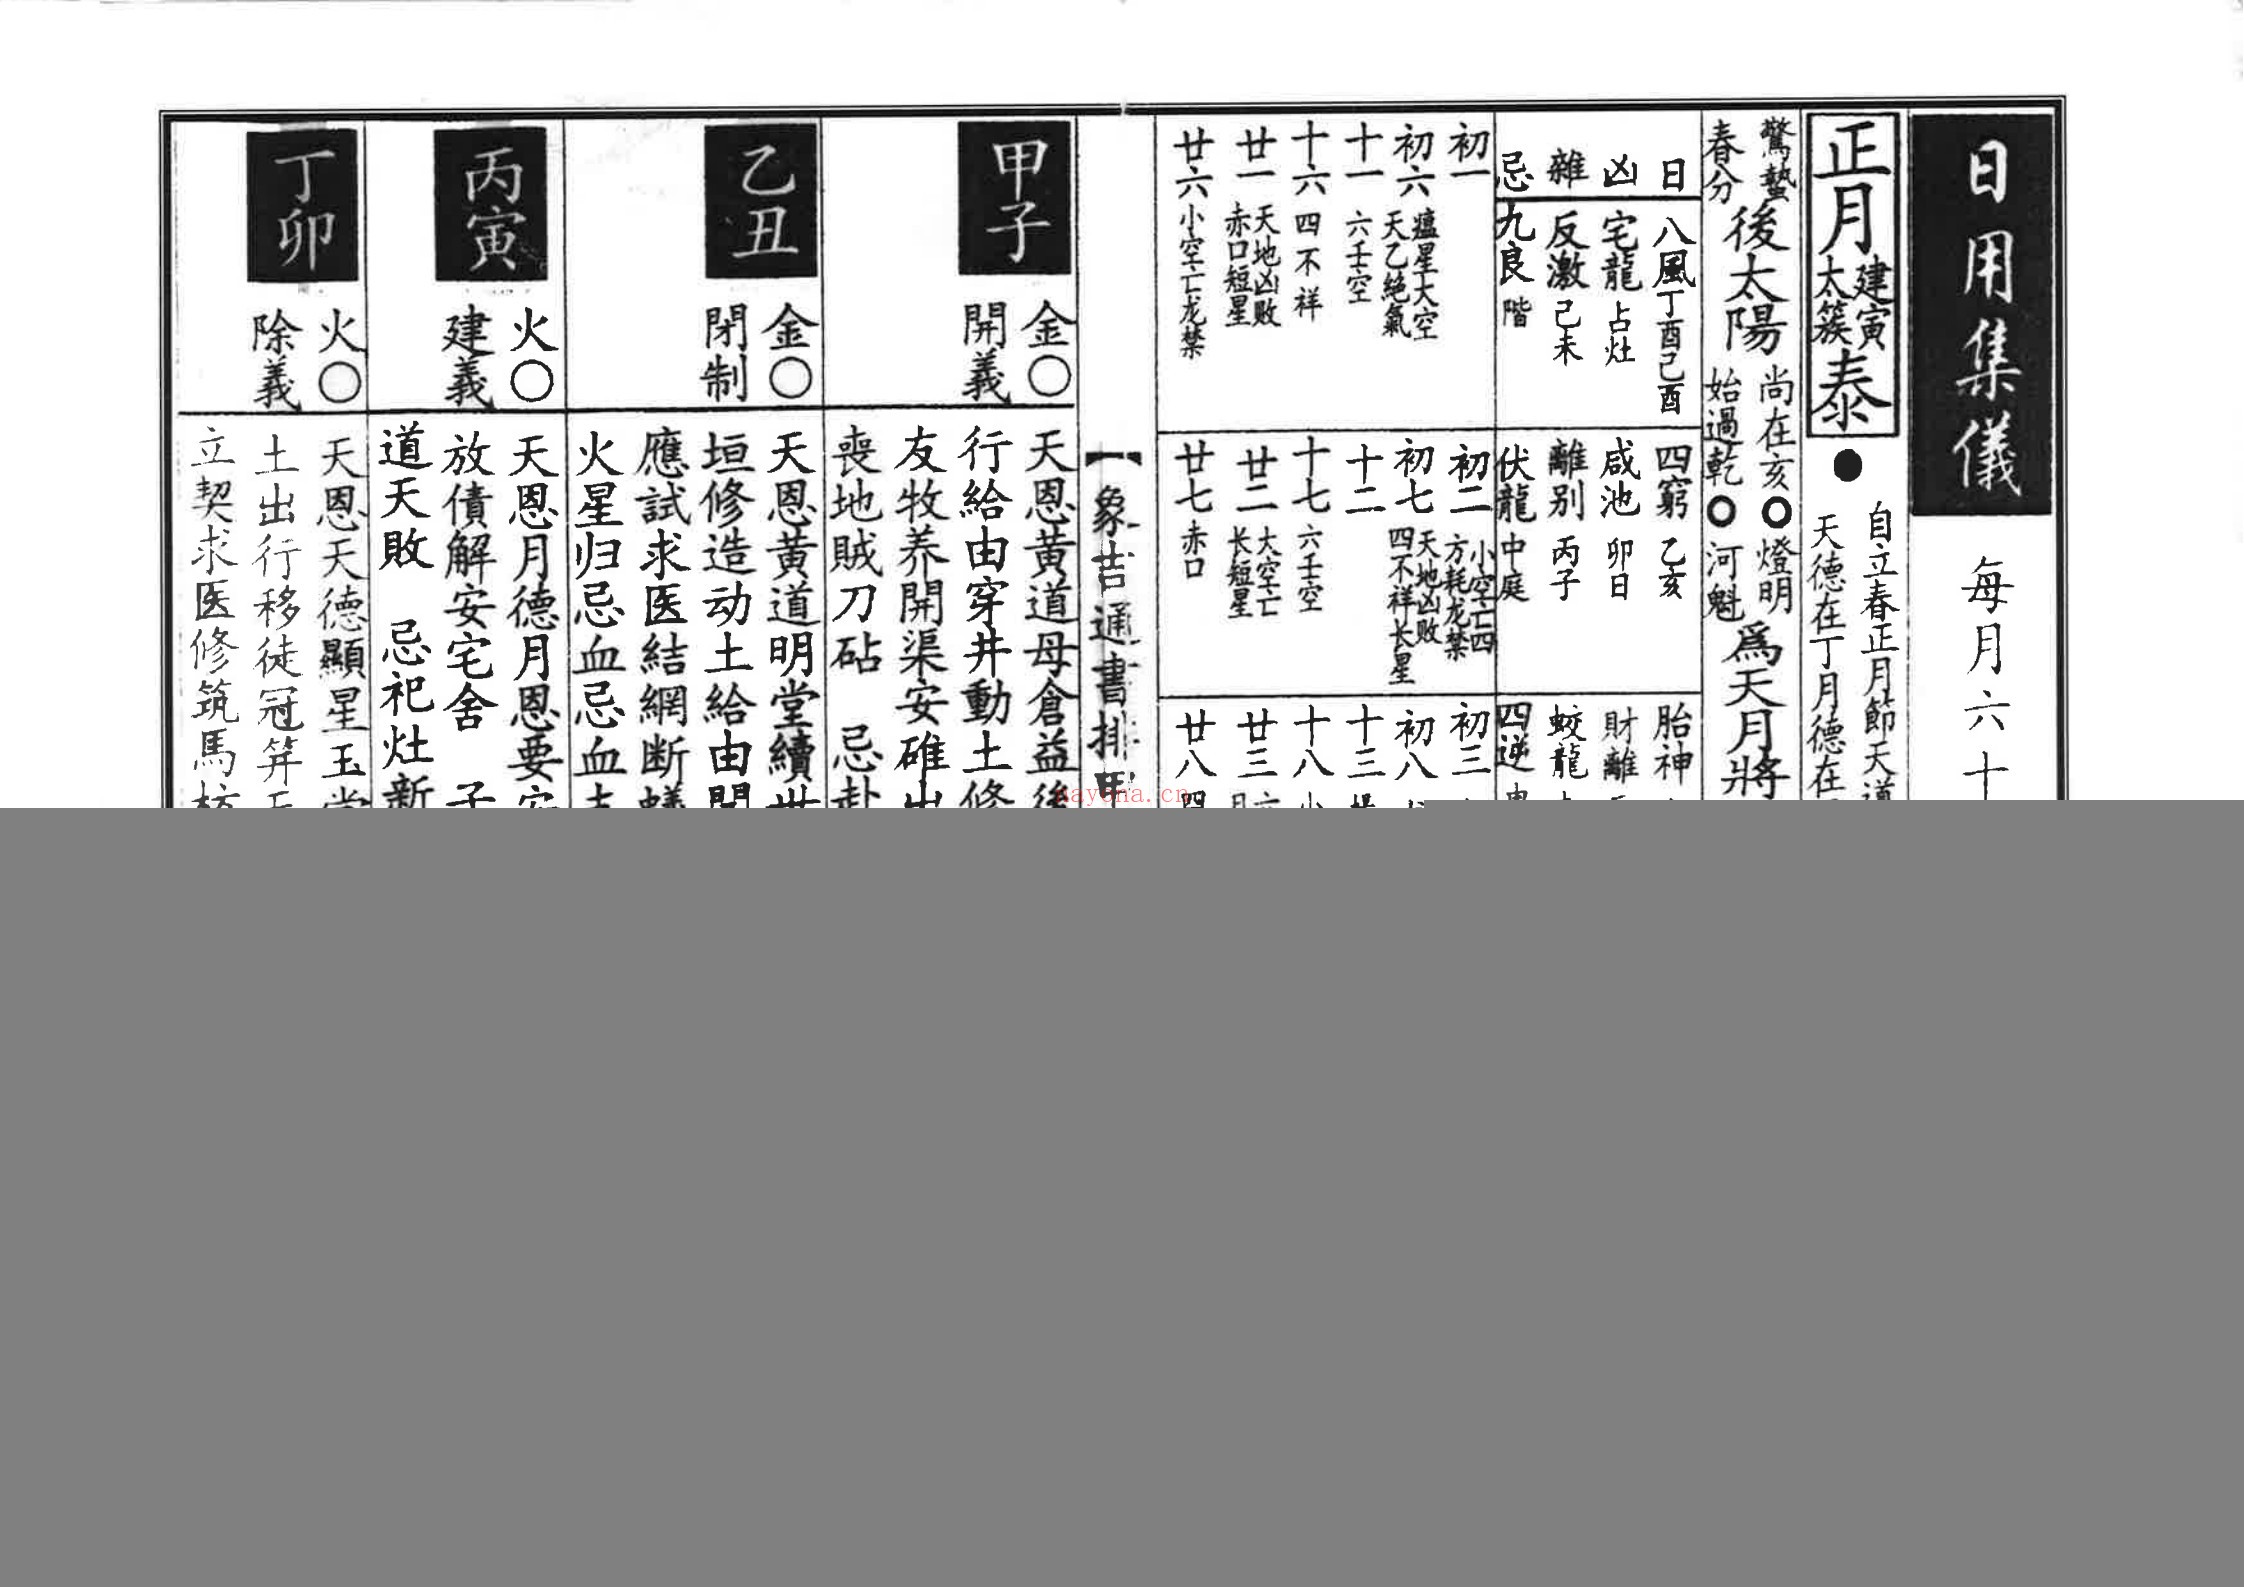 日用集儀
每月六十
正月建寅太簇泰
自立春正月節天道
天德在丁月德在
驚蟄春分後太陽尚在亥始過乾燈明河魁為天月將
日凶雜忌
八風丁酉己酉
宅龍占灶
反激己未
九良階
四窮乙亥
咸池卯日
離別丙子
伏龍中庭
胎神
財離
蛟龍
四逆
初一
初六瘟星大空天乙絕氣
十一六壬空
十六四不祥
廿一天地凶敗赤口短星
廿六小空亡龙禁
初二小空亡四方耗龙禁
初七天地凶敗四不祥长星
十二
十七六壬空
廿二大空亡长短星
廿七赤口
初三
初八
十三
十八小
廿三
廿八四
象吉通書排
甲子
金○
開義
天恩黄道母倉益後
行給由穿井動土修
友牧养開渠安碓出
喪地賊刀砧 忌赴
乙丑
金○
閉制
天恩黄道明堂續世
垣修造动土給由開
應試求医結網断蟻
火星归忌血忌血支
丙寅
火○
建義
天恩月德月恩要安
放債解安宅舍 子
道天敗 忌祀灶新
丁卯
火○
除義
天恩天德顯星玉堂
土出行移徒冠笄
立契求医修筑馬枋
nayona.cn